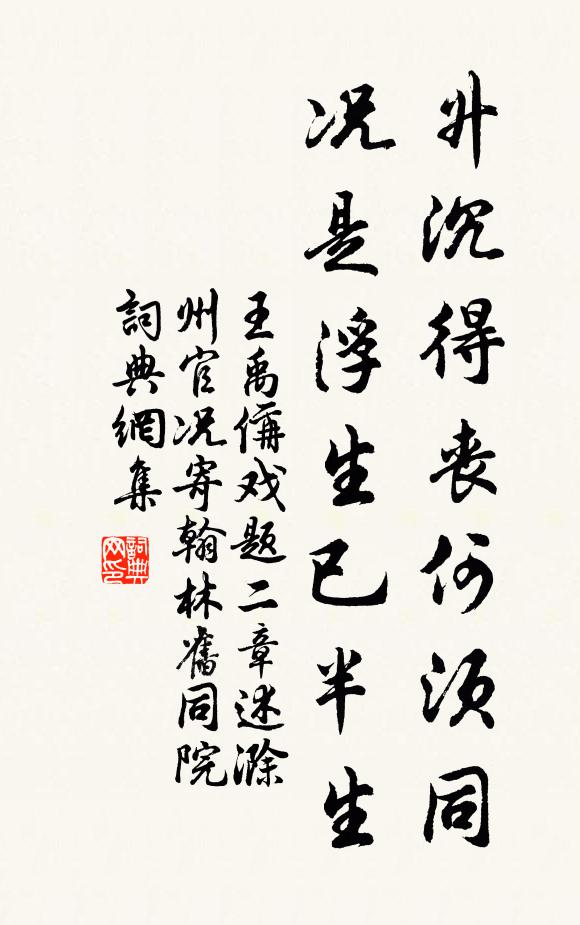 升沉得丧何须同
况是浮生已半生
王禹偁戏题二章述滁
州官况寄翰林舊同院
詞典網集
詞典网印